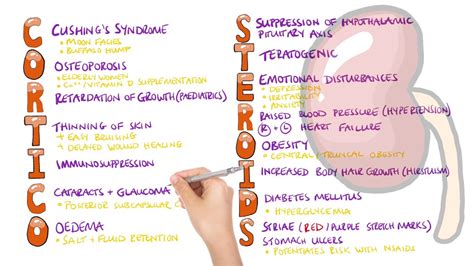 C
O
R
T
I
C
O
CUSHING'S SYNDROME
* MOON FACIES
* BUFFALO HUMP
OSTEOPOROSIS
* ELDERLY WOMEN
* Ca++/VITAMIN D SUPPLEMENTATION
RETARDATION OF GROWTH (PAEDIATRICS)
THINNING OF SKIN
* EASY BRUISING
* DELAYED WOUND HEALING
IMMUNOSUPPRESSION
CATARACTS + GLAUCOMA
* POSTERIOR SUBCAPSULAR C
OEDEMA
* SALT + FLUID RETENTION
S
T
E
R
O
I
D
S
SUPPRESSION OF HYPOTHALAMIC
PITUITARY AXIS
TERATOGENIC
EMOTIONAL DISTURBANCES
* DEPRESSION
* IRRITABILITY
* ANXIETY
RAISED BLOOD PRESSURE (HYPERTENSION)
R + L HEART FAILURE
OBESITY
* CENTRAL/TRUNCAL OBESITY
INCREASED BODY HAIR GROWTH (HIRSUTISM)
DIABETES MELLITUS
* HYPERGLYCEMIA
STRIAE (RED/PURPLE STRETCH MARKS)
STOMACH ULCERS
* POTENTIATES RISK WITH NSAIDS